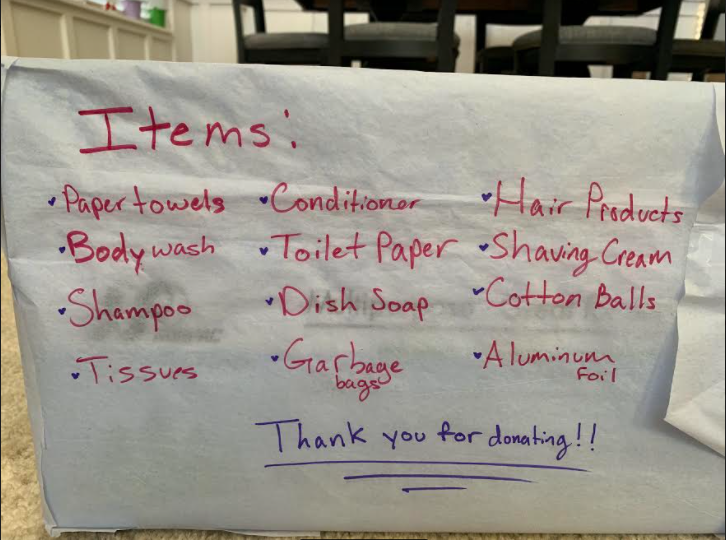 Items:
• Paper towels
• Body wash
• Shampoo
• Tissues
• Conditioner
• Toilet Paper
• Dish Soap
• Garbage
bags
• Hair Products
• Shaving Cream
• Cotton Balls
• Aluminum
Foil
Thank you for donating!!